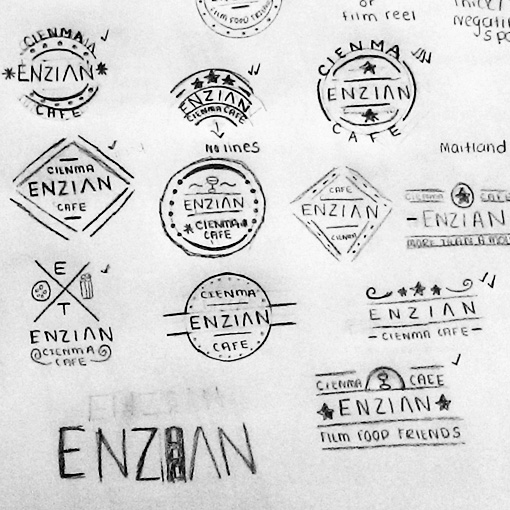 FILM FOOD FRIENDS
or
film reel
negative
CIENMA
ENZIAN
CAFE
ENZIAN
CIENMA CAFE
NO LINES
CIENMA
ENZIAN
CAFE
Maitland
CIENMA
ENZIAN
CAFE
ENZIAN
CIENMA
CAFE
CAFE
ENZIAN
CIENMA
CIENMA CAFE
-ENZIAN
MORE THAN A MOV
E
T
ENZIAN
CIENMA
CAFE
CIENMA
ENZIAN
CAFE
ENZIAN
-CIENMA CAFE-
CIENMA CAFE
ENZIAN
FILM FOOD FRIENDS
ENZIAN